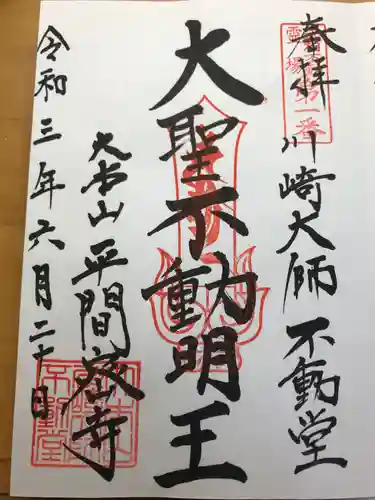 奉拝
霊場第一番
川崎大師 不動堂
大聖不動明王
大本山 平間寺
令和三年六月二十日